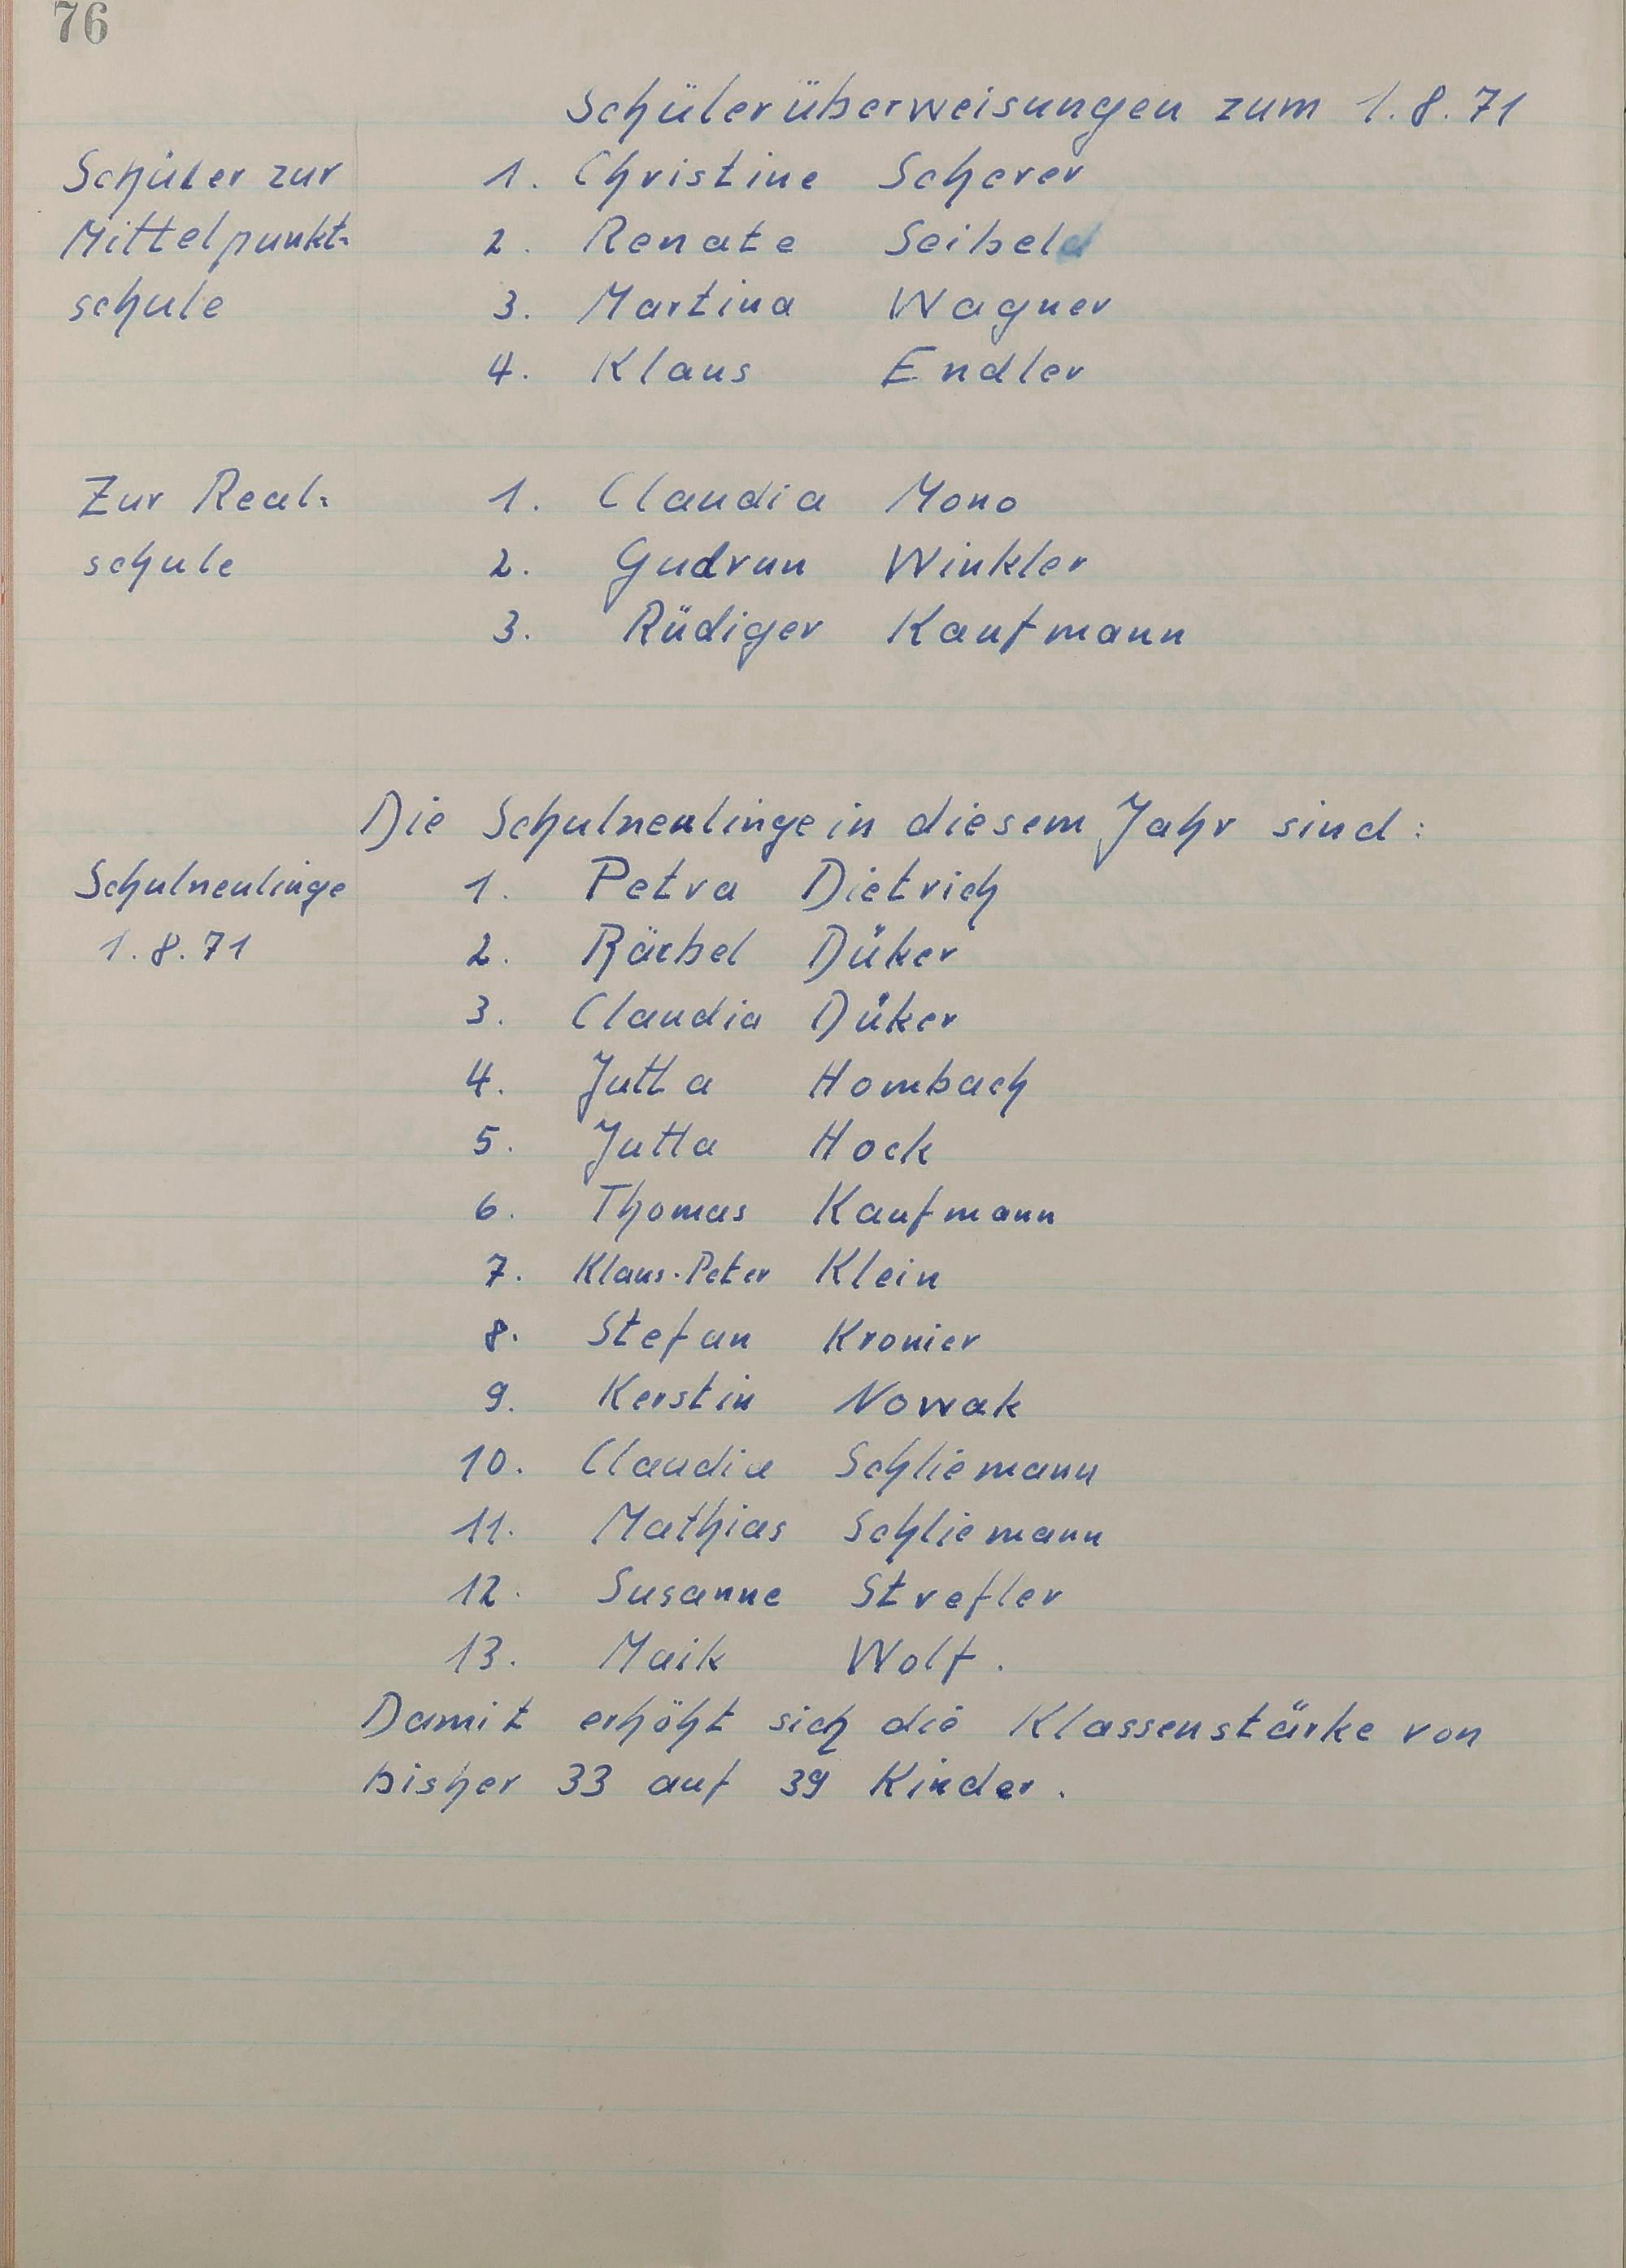 76
Schülerüberweisungen zum 1.8.71
Schüler zur 1. Christine Scherer
Mittelpunkt- 2. Renate Seibel
schule 3. Martina Wagner
4. Klaus Endler
Zur Real- 1. Claudia Mono
schule 2. Gudrun Winkler
3. Rüdiger Kaufmann
Die Schulneulinge in diesem Jahr sind:
Schulneulinge 1. Petra Dietrich
1.8.71 2. Bärbel Düker
3. Claudia Düker
4. Jutta Hombach
5. Jutta Hock
6. Thomas Kaufmann
7. Klaus-Peter Klein
8. Stefan Kronier
9. Kerstin Nowak
10. Claudia Schliemann
11. Mathias Schliemann
12. Susanne Strefler
13. Maik Wolf.
Damit erhöht sich die Klassenstärke von
bisher 33 auf 39 Kinder.